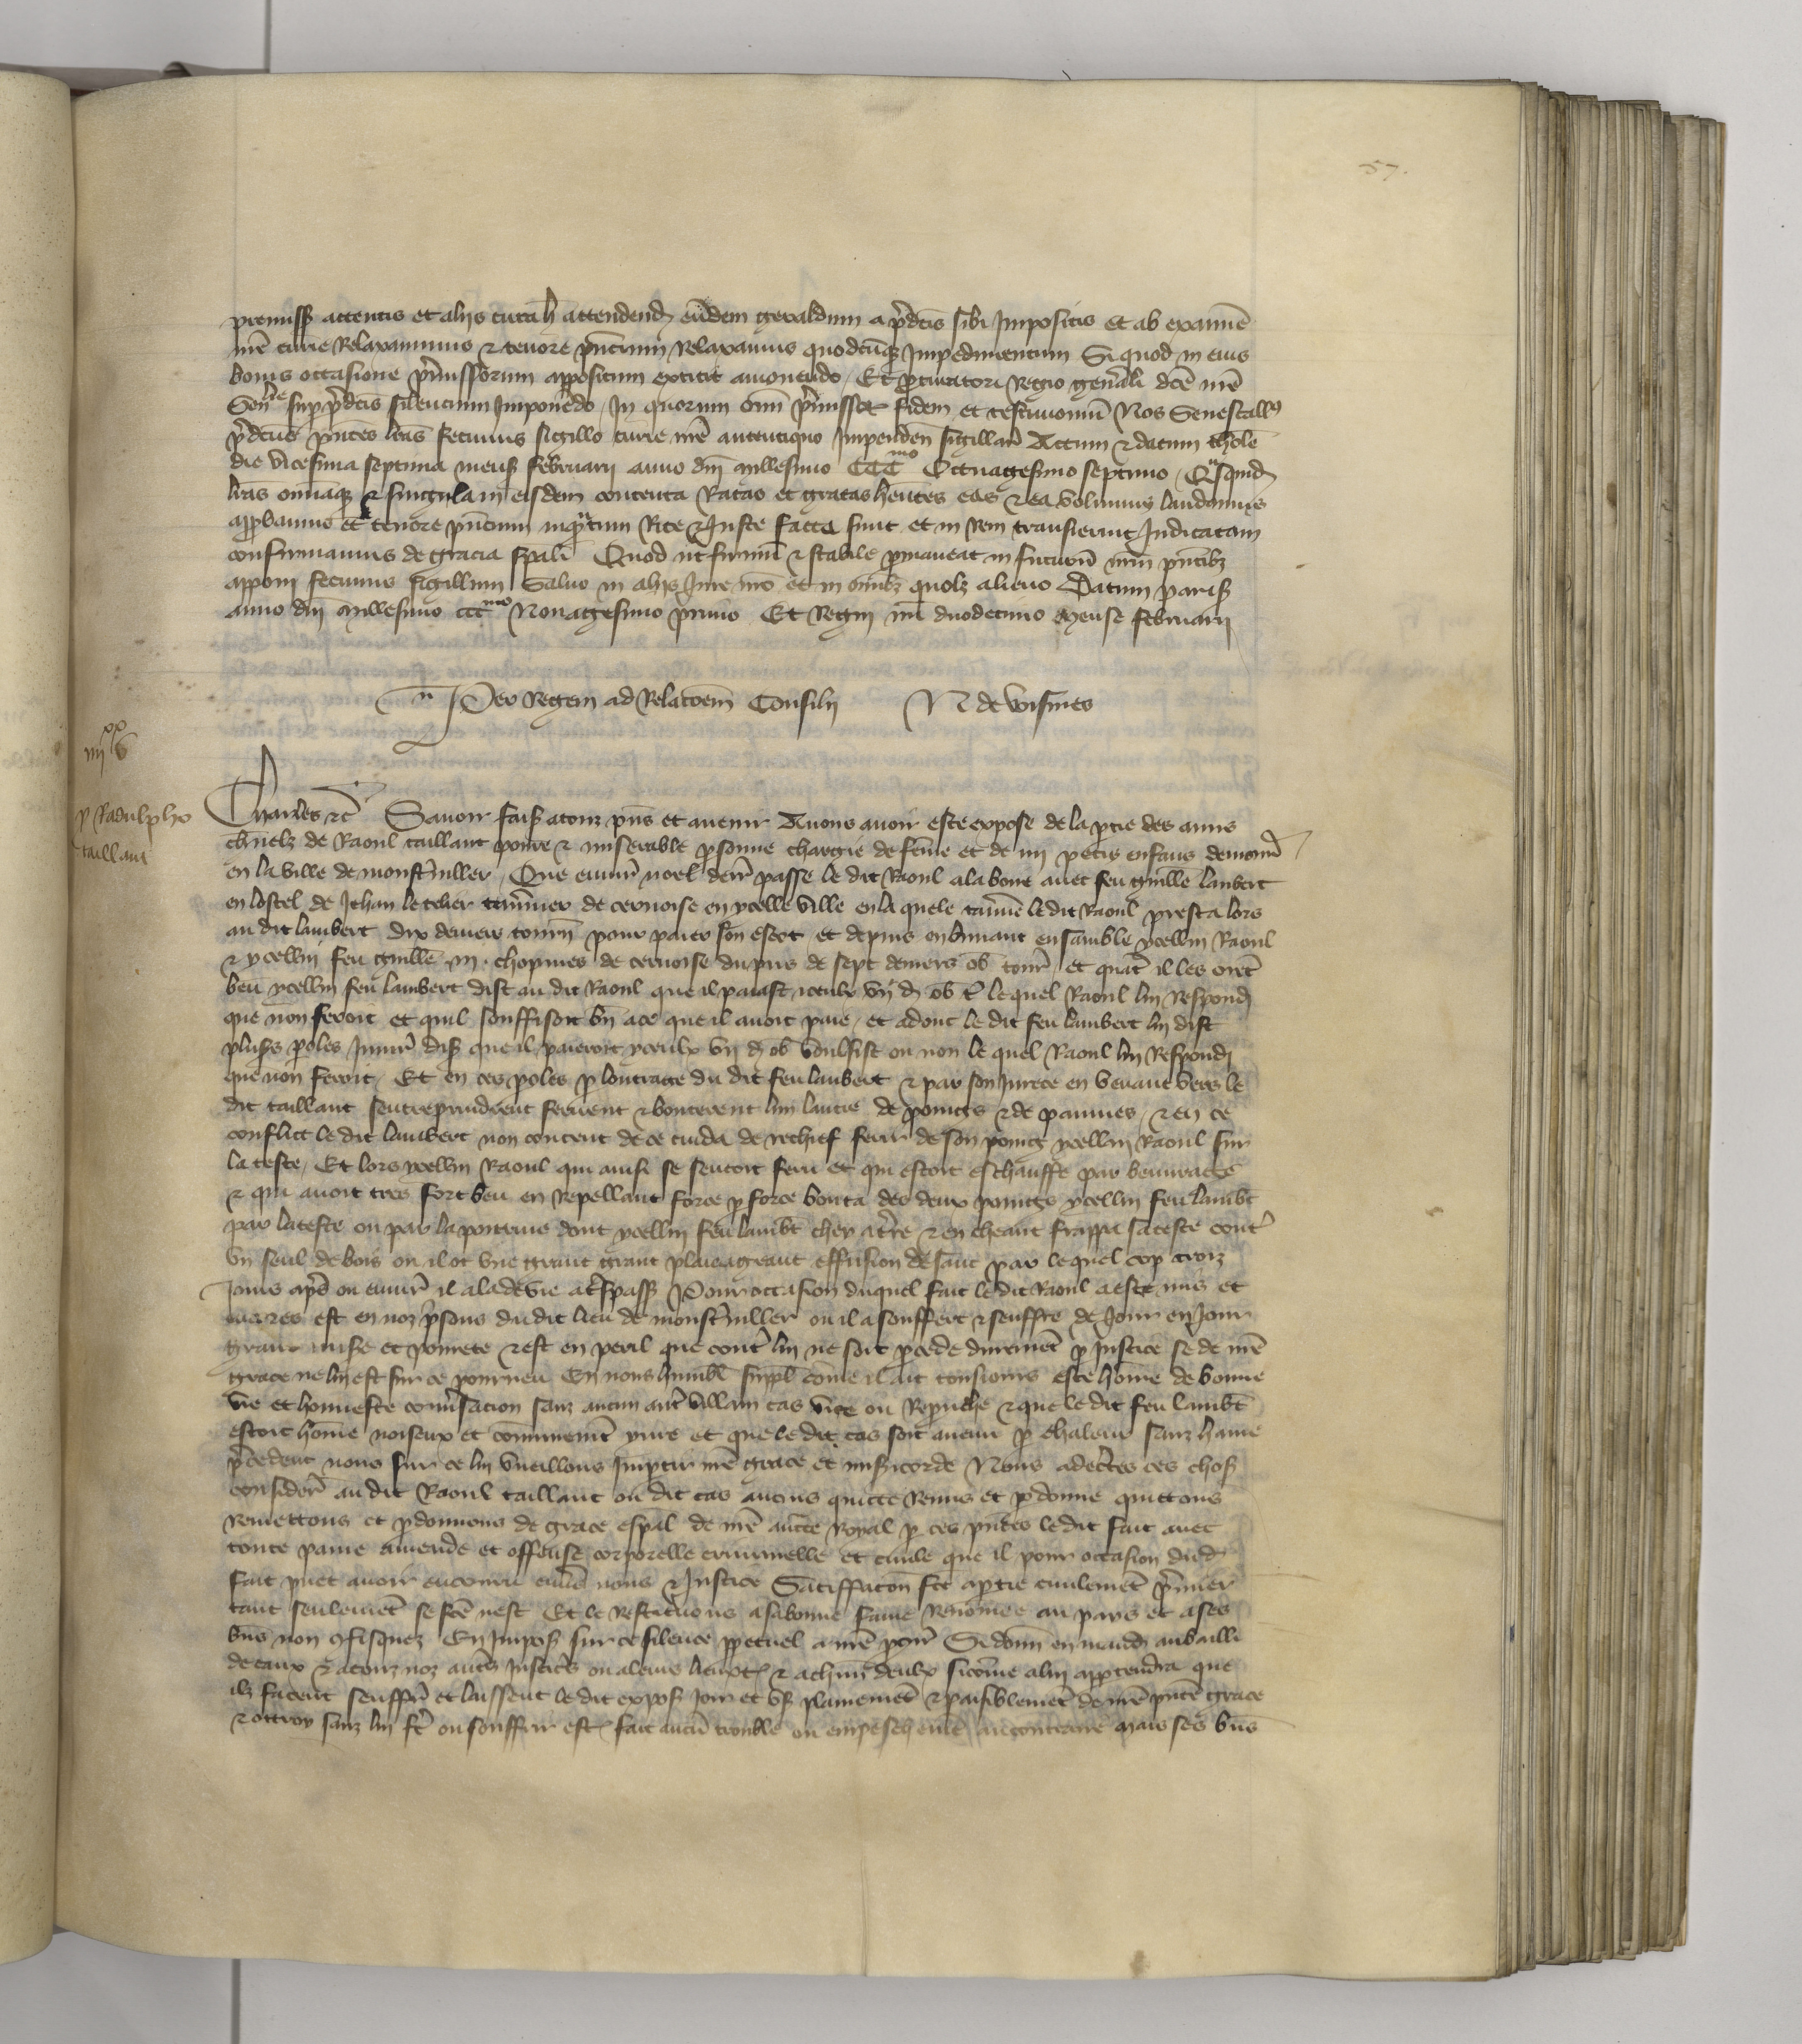 57.
premiss attentis et aliis circa h attendend eudem geraldum a pdcis sibi Impositis et ab examine
nre curie Relaxauimus & tenore pncium Relaxamus quodcuq Impedimentum Si quod in eius
bonis occasione pmissorum appositum extitit amouendo / Et pcuratori Regio genali dce nre
Sen sup pdcis silencium Imponedo / In quorum omi pmissor fidem et testimoniu Nos Senescallus
pdcus pntes lras fecimus sigillo curie nre autentiquo Impenden sigillari Actum & datum thole
die vicesima septima mens februarii anno dni millesimo CCC mo Octuagesimo septimo / Quasquid
lras omniaq & singula in eisdem contenta Ratas et gratas hentes eas & ea volumus laudamus
approbamus et tenore pncium inqtum Rite & Iuste facta sunt et in Rem transierunt Iudicatam
confirmamus de gracia spali Quod ut firmu & stabile pmaneat in futuru nrm pntibz
apponi fecimus sigillum Saluo in aliis Iure nro et in omibz quolz alieno Datum paris
anno dni millesimo ccc mo Nonagesimo primo Et Regni nri duodecimo Mense februarii
Per Regem ad Relacoem Consilii N de voisines
iiij xx v
p Radulpho
taillant
Charles &c Sauoir fais a touz pns et auenir Auons auoir este expose de la ptie des amis
charnelz de Raoul taillant poure & miserable psonne chargie de feme et de iiij petis enfans demour
en la ville de monstruiller / Que enuir noel derr passe le dit Raoul ala boire auec feu guille lanbert
en lostel de Jehan le telier tauernier de ceruoise en ycelle ville en la quele tauerne le dit Raoul presta lors
au dit lambert dix deniers tourn pour paier son escot / et depuis en buuant ensamble ycellui Raoul
& ycellui feu guille iii chopines de ceruoise du pris de sept deniers ob tourn / et quat il les oret
beu ycellui feu lambert dist au dit Raoul que il paiast iceulx vij d ob t le quel Raoul lui Respondi
que non feroit et quil souffisoit bn a ce que il auoit paie / et adonc le dit feu lambert lui dist
pluss poles Iniur dis que il paieroit yceulx vij d ob voulsist ou non le quel Raoul lui Respondi
que non feroit / Et en ces poles p loutrage du dit feu lambert & par son Iniree en venant vers le
dit taillant sentreprindrent ferirent & bouterent lun lautre de poings & de paumes / & en ce
conflict le dit lambert non content de ce cuida de rechief ferir de son poing ycellui Raoul sur
la teste / Et lors ycellui Raoul qui ainsi se sentoit feru et qui estoit eschauffe par beuuraige
& qui auoit tres fort beu en Repellant force p force bouta des deux poings ycellui feu lambt
par la teste ou par la poitrine dont ycellui feu lambt chey a tre & en cheant frappa sa teste cont
vn seul de bois ou il ot vne grant grant plaie a grant effusion de sanc par le quel cop trois
Jours apres ou enuir il ala de vie a trespass Pour occasion duquel fait le dit Raoul a este mis et
encores est en noz prisons du dit lieu de monstruiller ou il a souffert & seuffre de Jour en Jour
grant mise et pourete & est en peril que cont lui ne soit pcede durement p Justice se de nre
grace ne lui est sur ce pourueu En nous humbl suppl come il ait tousiours este home de bonne
vie et honneste conusacion sanz aucun autre villain cas vice ou Reprouche & que le dit feu lambt
estoit home noiseux et comunemet yure et que le dit cas soit auenu p chaleur sanz haine
pcedent nous sur ce lui vueillons Impartir nre grace et misicorde Nous adecertes ces chos
considere au dit Raoul taillant ou dit cas auons quitte Remis et pdonne quittons
Remettons et pdonnons de grace espal de nre aucte Royal p ces pntes le dit fait auec
toute paine amende et offense corporelle criminelle et ciuile que il pour occasion dud
fait puet auoir encouru enus nous & Justice Satiffacion fce a ptie ciuilemet pmier
tant seulemet se fce nest Et le Restituons a sa bonne fame Renomee au pays et a ses
bns non 9fisquez En Impos sur ce silence ppetuel a nre pcur Si donn en mandm au bailli
de caux & a touz noz autres Justiciers ou a leurs lieuxt & a chun deulx sicome a lui apptendra que
ilz facent seuffr et laissent le dit expos Joir et vs plainemet & paisiblemet de nre pnte grace
& ottroy sanz lui fe ou souffrir est fait aucu trouble ou empeschemet au contraire mais ses bns